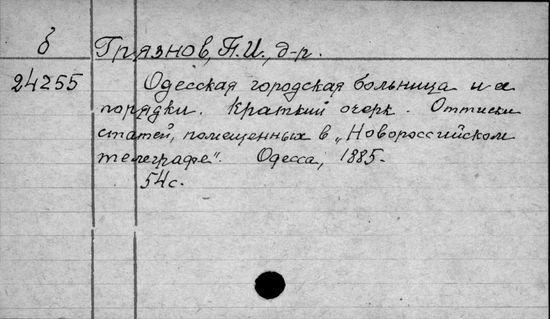 б Грязнов, П.И., д-р.
24255 Одесская городская больница и ея
порядки. Краткий очерк. Оттиски
статей, помещенных в „Новороссийском
телеграфе". Одесса, 1885.
54с.